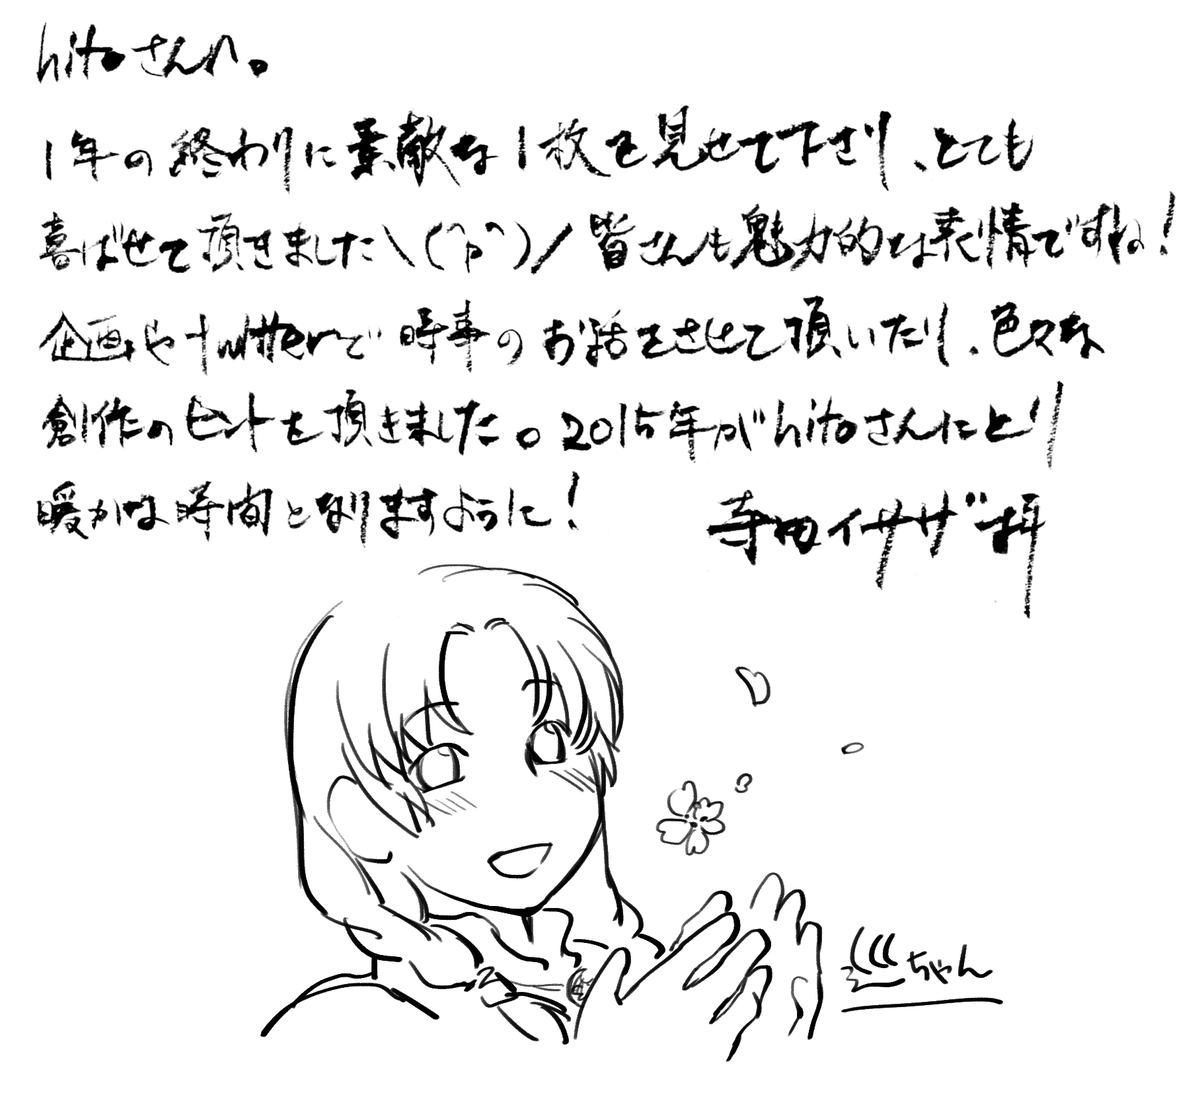 hitoさんへ。
1年の終わりに素敵な1枚を見せて下さり、とても
喜ばせて頂きました\(^p^)/皆さんも魅力的な表情ですね!
企画やtwitterで時事のお話をさせて頂いたり、色々な
創作のヒントを頂きました。2015年がhitoさんにとり
暖かな時間となりますように!
寺田イサザ拝
巡ちゃん